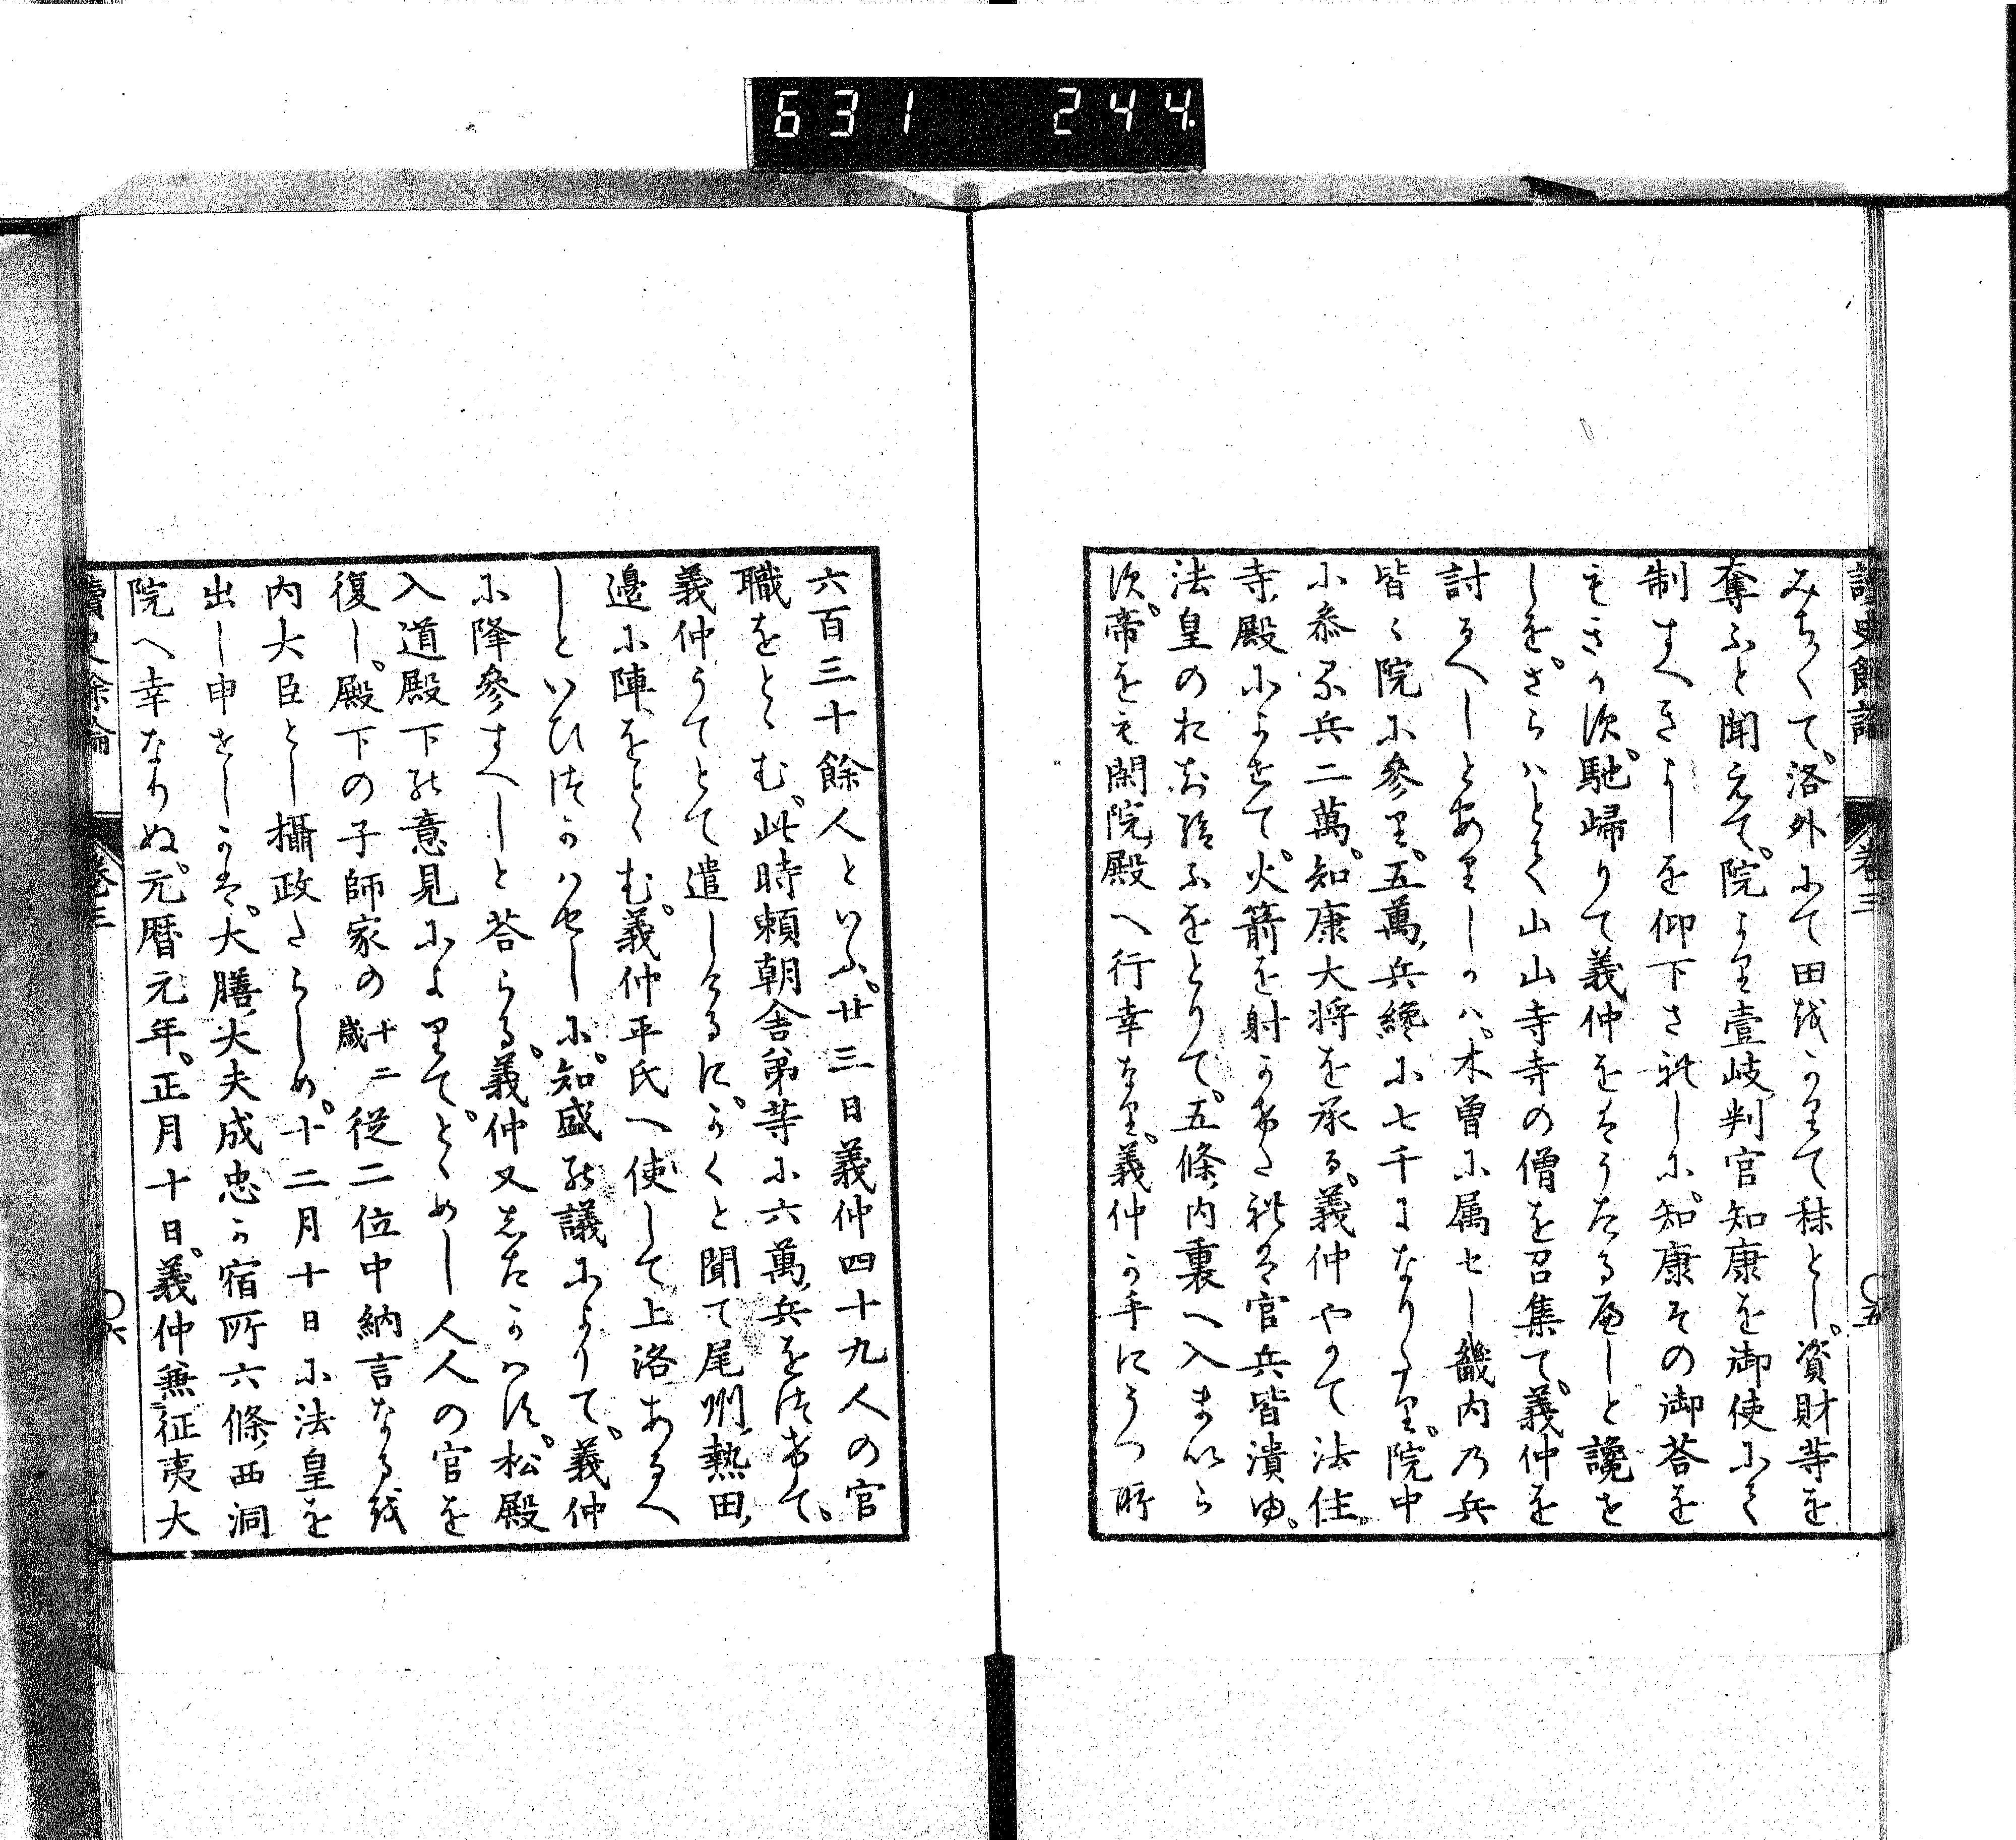 631 244
讀史餘論 卷三 〇五
みちくて。洛外にて田をかりて秣とし。資財等を
奪ふと聞えて。院より壹岐判官知康を御使にて
制すへきよしを仰下されしに。知康その御荅を
もきかす。馳歸りて義仲をはうたるへしと讒を
しを。さらはとて山山寺寺の僧を召集て。義仲を
討るへしとありしかハ。木曽に属セし畿内乃兵
皆〻院に參り。五萬兵纔に七千になりたり。院中
に叅る兵二萬。知康大将を承る。義仲やかて法住
寺殿によせて。火箭を射かけたれは官兵皆潰ゆ。
法皇のおち給ふをとりて。五條内裏へ入まいら
す。帝をも閑院殿へ行幸なり。義仲か手にうつ所
六百三十餘人といふ。廿三日義仲四十九人の官
職をとゝむ。此時頼朝舎弟等に六萬兵をつけて。
義仲うてとて遣しけるに。かくと聞て尾州熱田
邊に陣をとゝむ。義仲平氏へ使して上洛あるへ
しといひつかハせしに。知盛の議によりて。義仲
に降參すへしと荅らる。義仲又したかハす。松殿
入道殿下の意見によりて。とゝめし人人の官を
復し。殿下の子師家の十二歳従二位中納言なるを
内大臣とし攝政たらしめ。十二月十日に法皇を
出し申せしかは。大膳大夫成忠か宿所六條西洞
院へ幸なりぬ。元暦元年。正月十日。義仲兼征夷大
讀史餘論 卷三 〇六